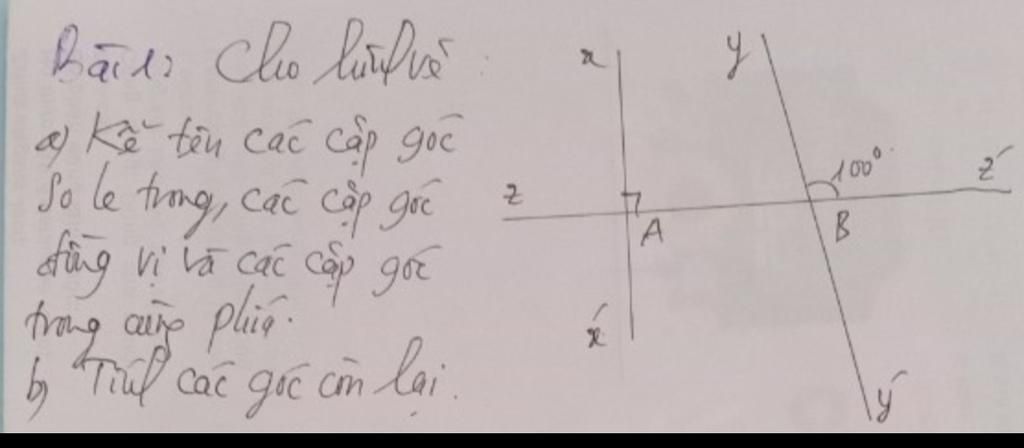 Bài 1: Cho hình vẽ
a) Kể tên các cặp góc
So le trong, các cặp góc
đồng vị và các cặp góc
trong cùng phía.
b) Tính các góc còn lại.
x
y
z
A
100°
z'
B
x'
y'